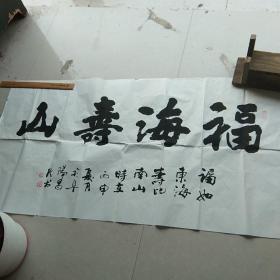 福海壽山
福如
東海
壽比
南山
時在
丙申
夏月